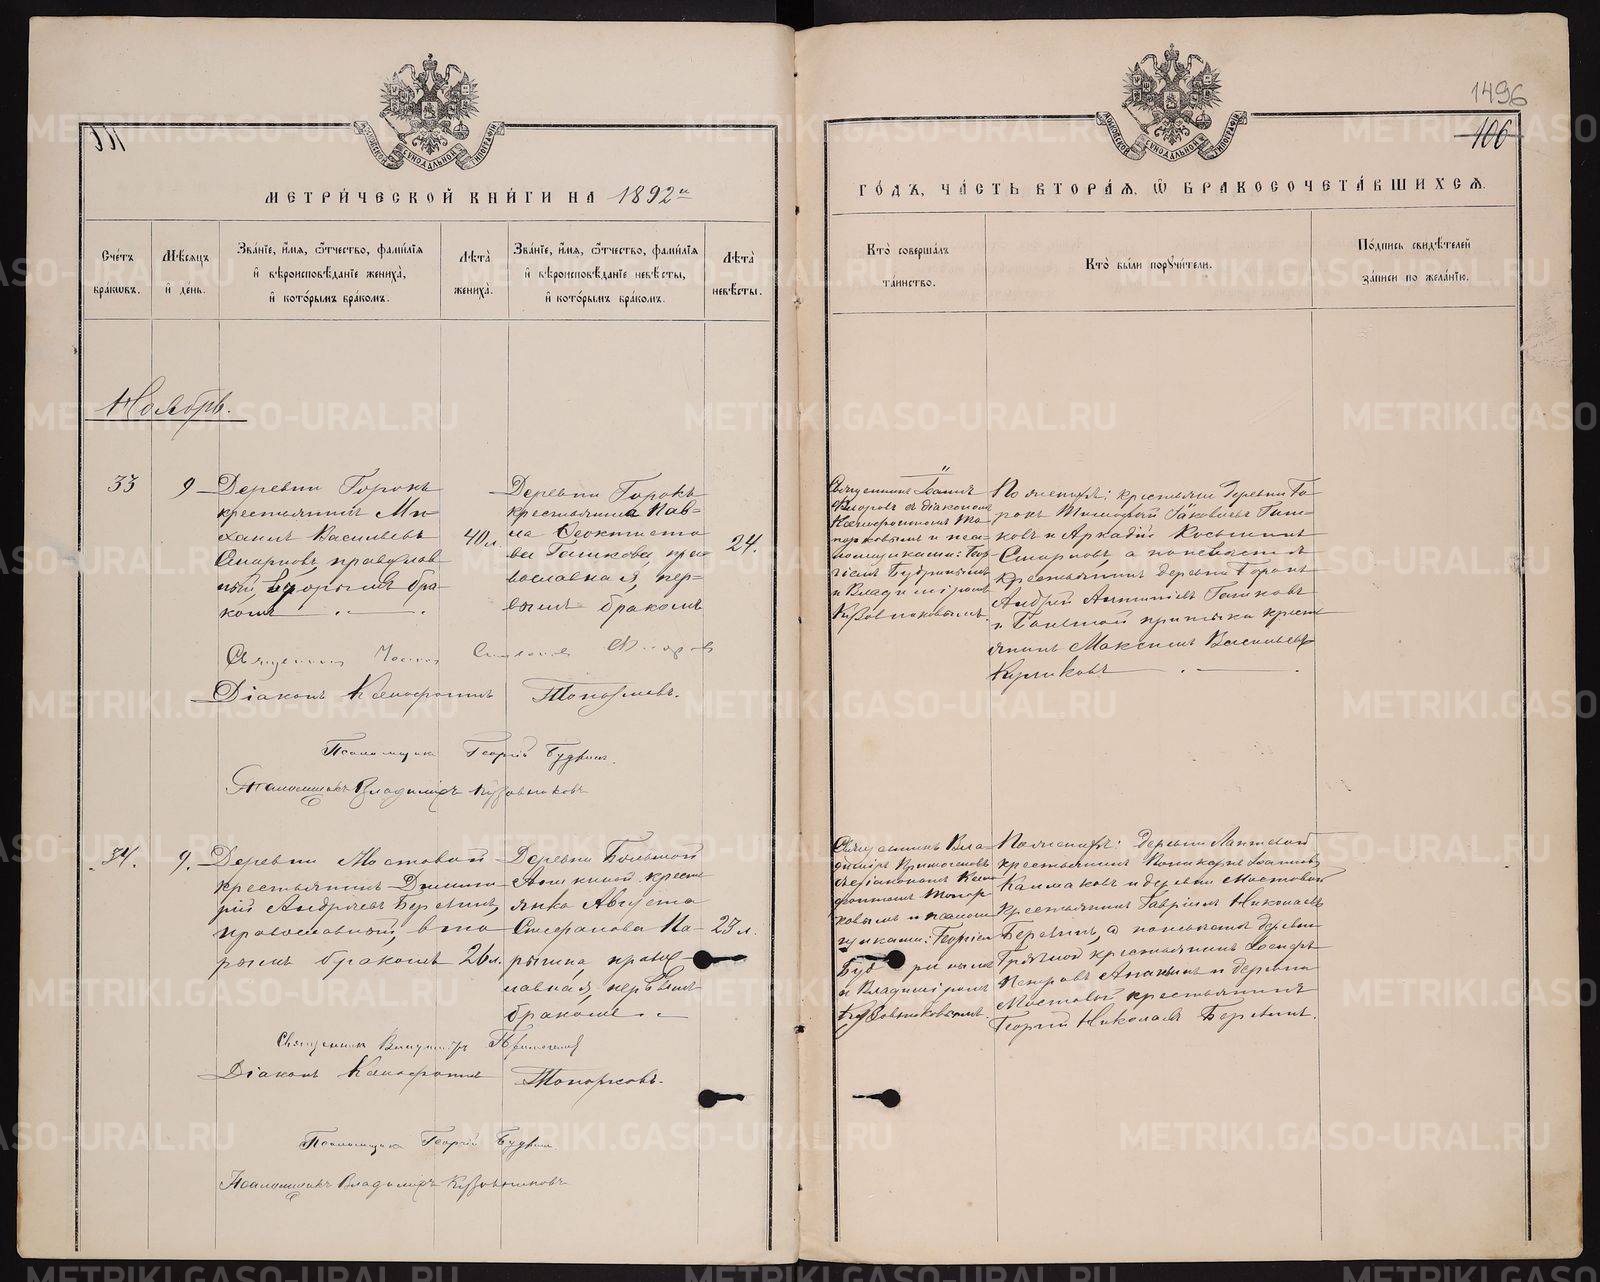 1496
106
МОСКОВСКОЙ СѴНОДАЛЬНОЙ ТИПОГРАФІИ
МОСКОВСКОЙ СѴНОДАЛЬНОЙ ТИПОГРАФІИ
МЕТРИ́ЧЕСКОЙ КНИ́ГИ НА 1892й
ГО́ДЪ, ЧА́СТЬ ВТОРА́Я, Ѽ БРАКОСОЧЕТА́ВШИХСЯ.
Сче́тъ бра́кѡвъ.
Мѣ́сяцъ и де́нь.
Зва́нїе, и́мя, ѻ́тчество, фами́лїя
и҆ вѣроисповѣ́данїе жениха̀,
и҆ кото́рымъ бра́комъ.
Лѣта̀ жениха̀.
Зва́нїе, и́мя, ѻ́тчество, фами́лїя
и҆ вѣроисповѣ́данїе невѣ́сты,
и҆ кото́рымъ бра́комъ.
Лѣта̀ невѣ́сты.
Кто̀ соверша́лъ та́инство.
Кто̀ бы́ли порꙋчи́тели.
По́дпись свидѣ́телей
за́писи по жела́нїю.
Ноябрь.
33
9
Деревни Горокъ
крестьянинъ Ми-
хаилъ Васильевъ
Смарновъ, православ-
ный, вторымъ бра-
комъ
40 л.
Деревни Горокъ
крестьянина Пав-
ла Ѳеоктисто-
ва Гашкова, пра-
вославная, пер-
вымъ бракомъ
24.
Священникъ Іоаннъ
Флоровъ съ діакономъ
Ксенофонтомъ То-
порковымъ и пса-
ломщиками: Геор-
гіемъ Будринымъ
и Владиміромъ
Кузовниковымъ.
По женихѣ: крестьяне деревни Го-
рокъ Тимоѳей Іаковлевъ Гаш-
ковъ и Аркадій Косьминъ
Смарновъ, а по невѣстѣ
крестьянинъ деревни Горокъ
Андрей Гашковъ
и крестья-
янинъ Максимъ Васильевъ
Священникъ Іоаннъ Флоровъ
Діаконъ Ксенофонтъ Топорковъ.
Псаломщикъ Георгій Будринъ.
Псаломщикъ Владиміръ Кузовниковъ
34.
9.
Деревни Мостовой
крестьянинъ Димит-
рій Андреевъ Берсенинъ,
православный, вто-
рымъ бракомъ
26 л.
Деревни Большой
крестья-
янка Августа
Стефанова Па-
рыгина, правос-
лавная, первымъ
бракомъ
23 л.
Священникъ Вла-
диміръ
съ діакономъ Ксено-
фонтомъ Топор-
ковымъ и псалом-
щиками: Георгіемъ
Будриныымъ
и Владиміромъ
Кузовниковымъ.
По женихѣ: деревни
крестьянинъ Поликарпъ Іоанновъ
Калмаковъ и деревни Мостовой
крестьянинъ Гавріилъ Николаевъ
Берсенинъ, а по невѣстѣ деревни
Грязной крестьянинъ Іосифъ
Петровъ Ананьинъ и деревни
Мостовой крестьянинъ
Георгій Николаевъ Берсенинъ.
Священникъ Владиміръ
Діаконъ Ксенофонтъ Топорковъ.
Псаломщикъ Георгій Будринъ
Псаломщикъ Владиміръ Кузовниковъ
METRIKI.GASO-URAL.RU